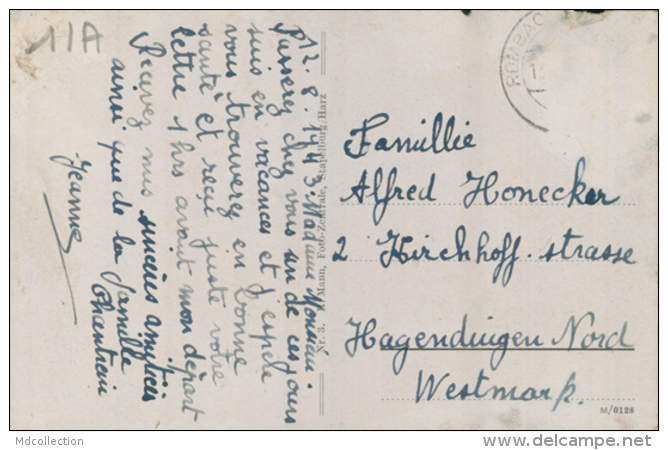 11A
12.8.1943. Madame Monsieur
Passerez chez vous un de ces jours
suis en vacances et j'espère
vous trouverez en bonne
santé et reçu juste votre
lettre 1 hrs avant mon départ
Recevez mes sincères amitiés
ainsi que de la famille
Jeanne
Nr. 3. Mann, Foto-Zentrale, Stapelburg/Harz
ROMBAC
Famillie
Alfred Honecker
2 Kirchhoff. strasse
Hagendingen Nord
Westmark.
M/0128
Mdcollection
delcampe.net